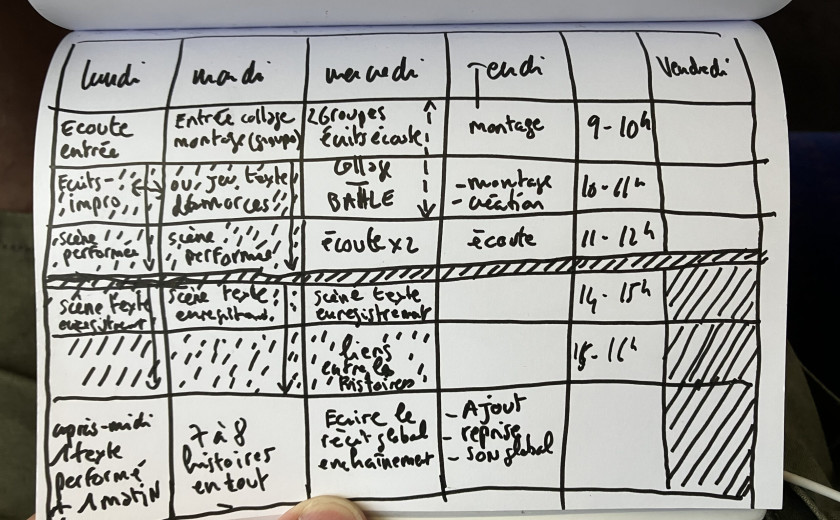 lundi
mardi
mercredi
Jeudi
Vendredi
Ecoute
entrée
Entrée collage
montage (groupe)
2 Groupes
Écrits écoute
montage
9-10h
Ecrits-
impro
ou jeu texte
démorces
collage
BATTLE
- montage
- création
10-11h
scène
performée
scène
performée
écoute x2
écoute
11-12h
scène texte
enregistrement
scène texte
enregistrement
scène texte
enregistrement
14-15h
liens
entre les
histoires
15-16h
après-midi
1 texte
performé
+ 1 matin
7 à 8
histoires
en tout
Ecrire le
récit global
enchaînement
- Ajout
- reprise
- son global